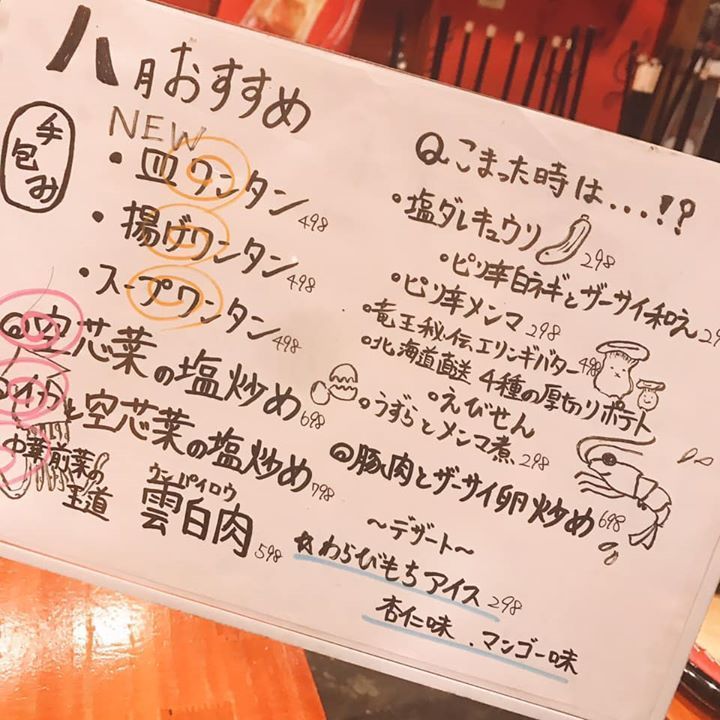 八月おすすめ
手包み
NEW
・皿ワンタン 498
・揚げワンタン 498
・スープワンタン 498
空芯菜の塩炒め 698
イカと空芯菜の塩炒め 798
中華前菜の王道
ウンパイロウ
雲白肉 598
Qこまった時は...!?
・塩ダレキュウリ 298
・ピリ辛白ネギとザーサイ和え 29
・ピリ辛メンマ 298
・竜王秘伝エリンギバター 498
・北海道直送 4種の厚切りポテト
・えびせん
・うずらとメンマ煮 298
豚肉とザーサイ卵炒め 698
〜デザート〜
☆わらびもちアイス 298
杏仁味.マンゴー味